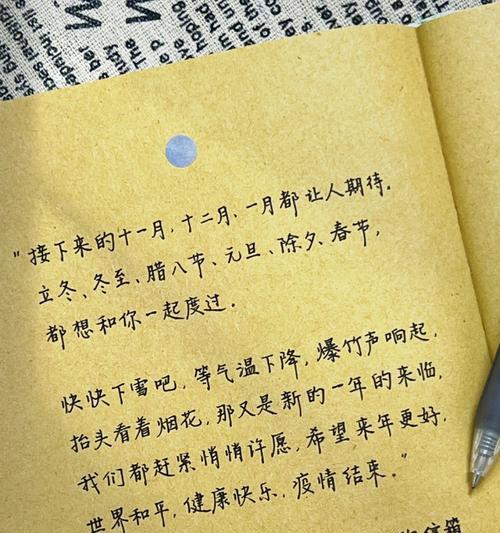 "接下来的十一月,十二月、一月都让人期待.
立冬、冬至、腊八节、元旦、除夕、春节,
都想和你一起度过.
快快下雪吧,等气温下降,爆竹声响起,
抬头看着烟花,那又是新的一年的来临,
我们都赶紧悄悄许愿,希望来年更好,
世界和平,健康快乐,疫情结束."
信箱